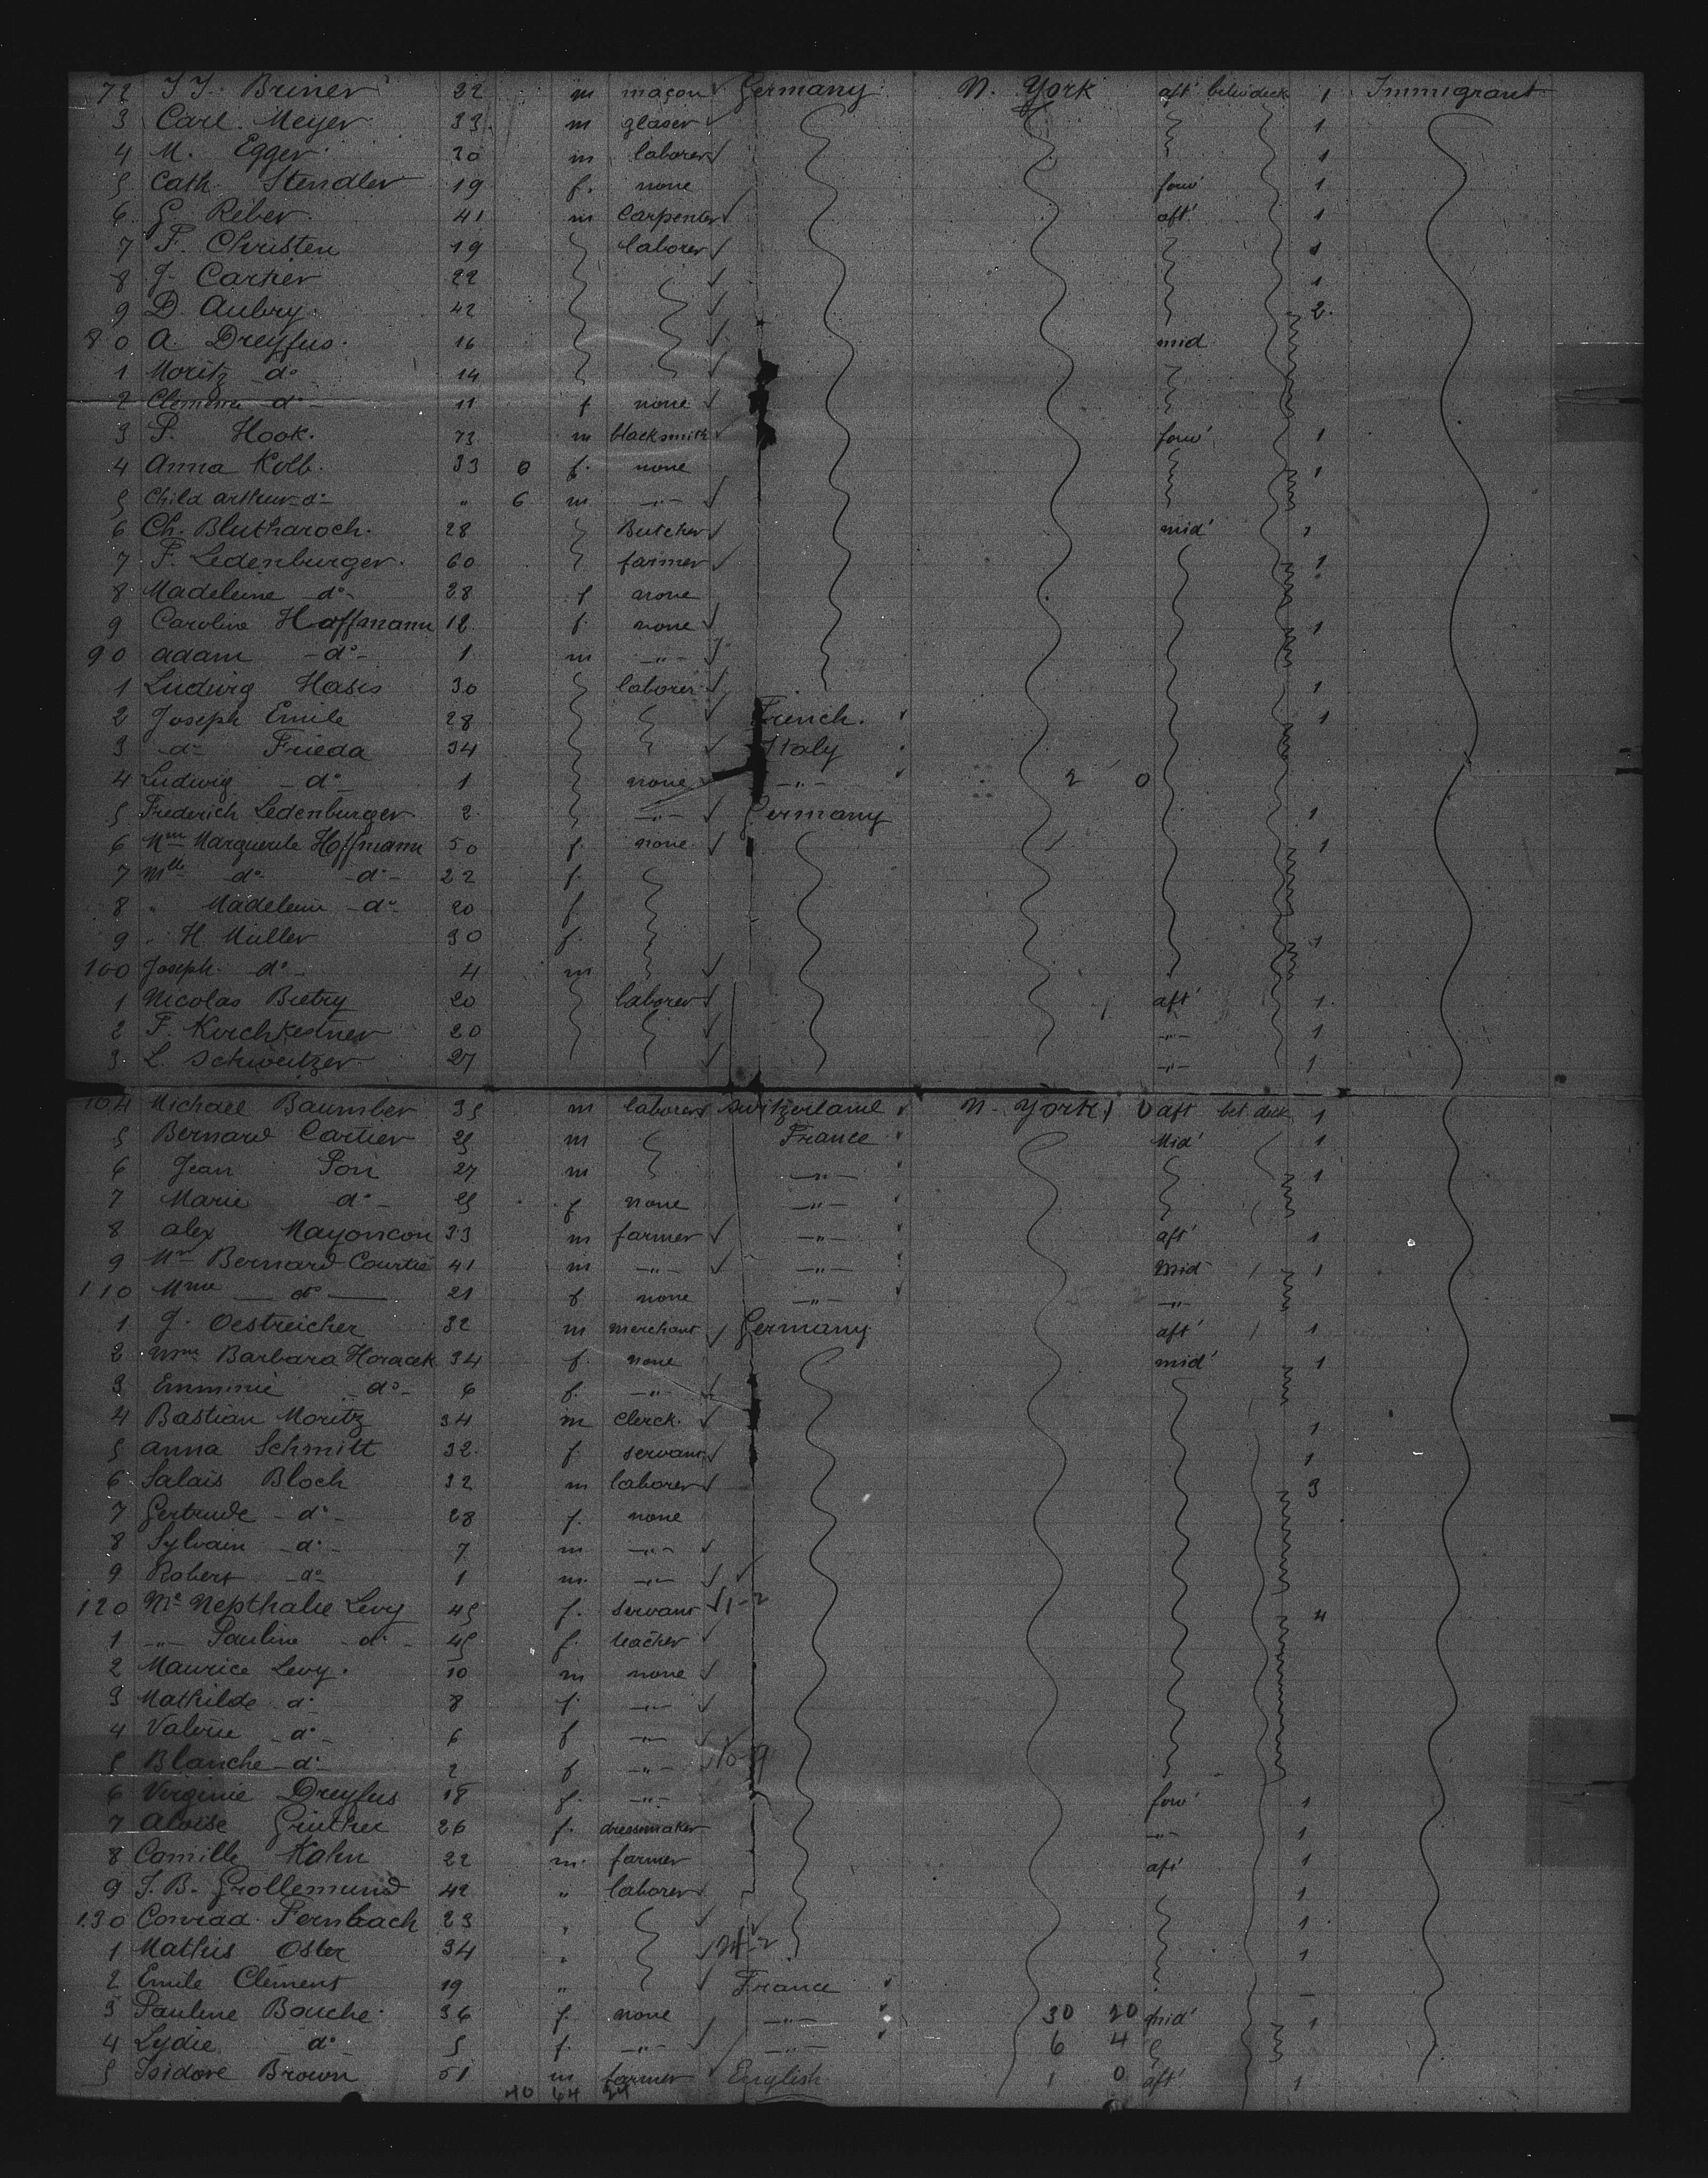 72 J J. Briner 22 m maçon Germany N. York aft betw deck 1 Immigrant
3 Carl. Meyer 33. m glaser 1
4 M. Egger 30 m laborer 1
5 Cath. Stendler 19 f. none forw' 1
6 G. Reber 41 m Carpenter aft' 1
7 F. Christen 19 laborer 1
8 J. Cartier 22 1
9 D. Aubry 42 2
80 A. Dreyfus 16 mid
1 Moritz do 14
2 Clemence do 11 f none
3 P. Hook. 73 m blacksmith forw' 1
4 Anna Kolb. 33 0 f. none 1
5 Child arthur do " 6 m -"-
6 Ch. Blutharoch. 28 Butcher mid' 1
7 F. Ledenburger. 60 farmer 1
8 Madeleine do 28 f none
9 Caroline Hoffmann 12 f. none 1
90 adam -do- 1 m -"-
1 Ludwig Hasis 30 laborer 1
2 Joseph Emile 28 French. 1
3 do Frieda 34 Italy
4 Ludwig -do- 1 none -"- 2 0
5 Frederich Ledenburger 2 -"- Germany 1
6 Mme Marguerite Hoffmann 50 f. none 1
7 Mlle do -do- 22 f.
8 " Madeleine -do- 20 f
9 " H. Müller 30 f. 1
100 Joseph do 4 m
1 Nicolas Bietry 20 laborer aft' 1
2 F. Kirchkestner 20 -"- 1
3. L. Schweitzer 27 -"- 1
104 Michael Baumber 35 m laborer Switzerland N. York 1 0 aft bet deck 1
5 Bernard Cartier 25 m France Mid' 1
6 Jean Pon 27 m -"- 1
7 Marie do- 25 f none -"-
8 alex Mayoncon 33 m farmer -"- aft' 1
9 Mr Bernard Courtie 41 m -"- -"- Mid 1
110 Mme do 21 f none -"- -"-
1 J. Oestreicher 32 m merchant Germany aft' 1
2 Mme Barbara Horacek 34 f. none mid' 1
3 Emminie -do- 6 f. -"-
4 Bastian Moritz 34 m Clerck. 1
5 anna Schmitt 32. f. servant 1
6 Salais Bloch 32 m laborer 3
7 Gertrude -do- 28 f. none
8 Sylvain -do- 7 m -"-
9 Robert -do- 1 m. -"-
120 Me Nepthalie Levy 45 f. servant 1-2 4
1 -"- Pauline do- 45 f. teacher
2 Maurice Levy. 10 m none
3 Mathilde do 8 f. -"-
4 Valerie -do- 6 f -"-
5 Blanche do 2 f -"-
6 Virginie Dreyfus 18 f. -"- forw' 1
7 Aloise Gruther 26 f. dressmaker -"- 1
8 Camille Kahn 22 m. farmer aft' 1
9 J. B. Grollemund 42 " laborer 1
130 Conrad Fernbach 23 " 1
1 Mathis Oster 34 " 1
2 Emile Clément 19 " France
3 Pauline Bouche 36 f. none -"- 30 20 mid' 1
4 Lydie do- 5 f. -"- -"- 6 4
5 Isidore Brown 51 m farmer English 1 0 aft' 1
40 64 24